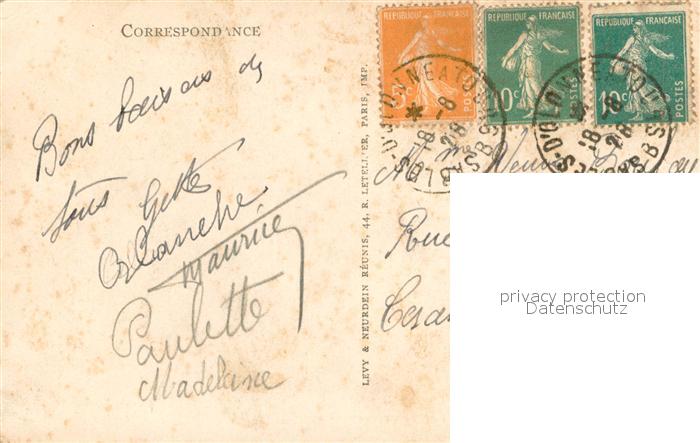 CORRESPONDANCE
Bons baisers de
tous Gette
Blanche
Maurice
Paulette
Madeleine
LEVY & NEURDEIN RÉUNIS, 44, R. LETELLIER, PARIS, IMP.
REPUBLIQUE FRANÇAISE
5c
POSTES
REPUBLIQUE FRANÇAISE
10c
POSTES
REPUBLIQUE FRANÇAISE
10c
POSTES
18-8
28
18-8
28
Veuve
Rue
privacy protection
Datenschutz